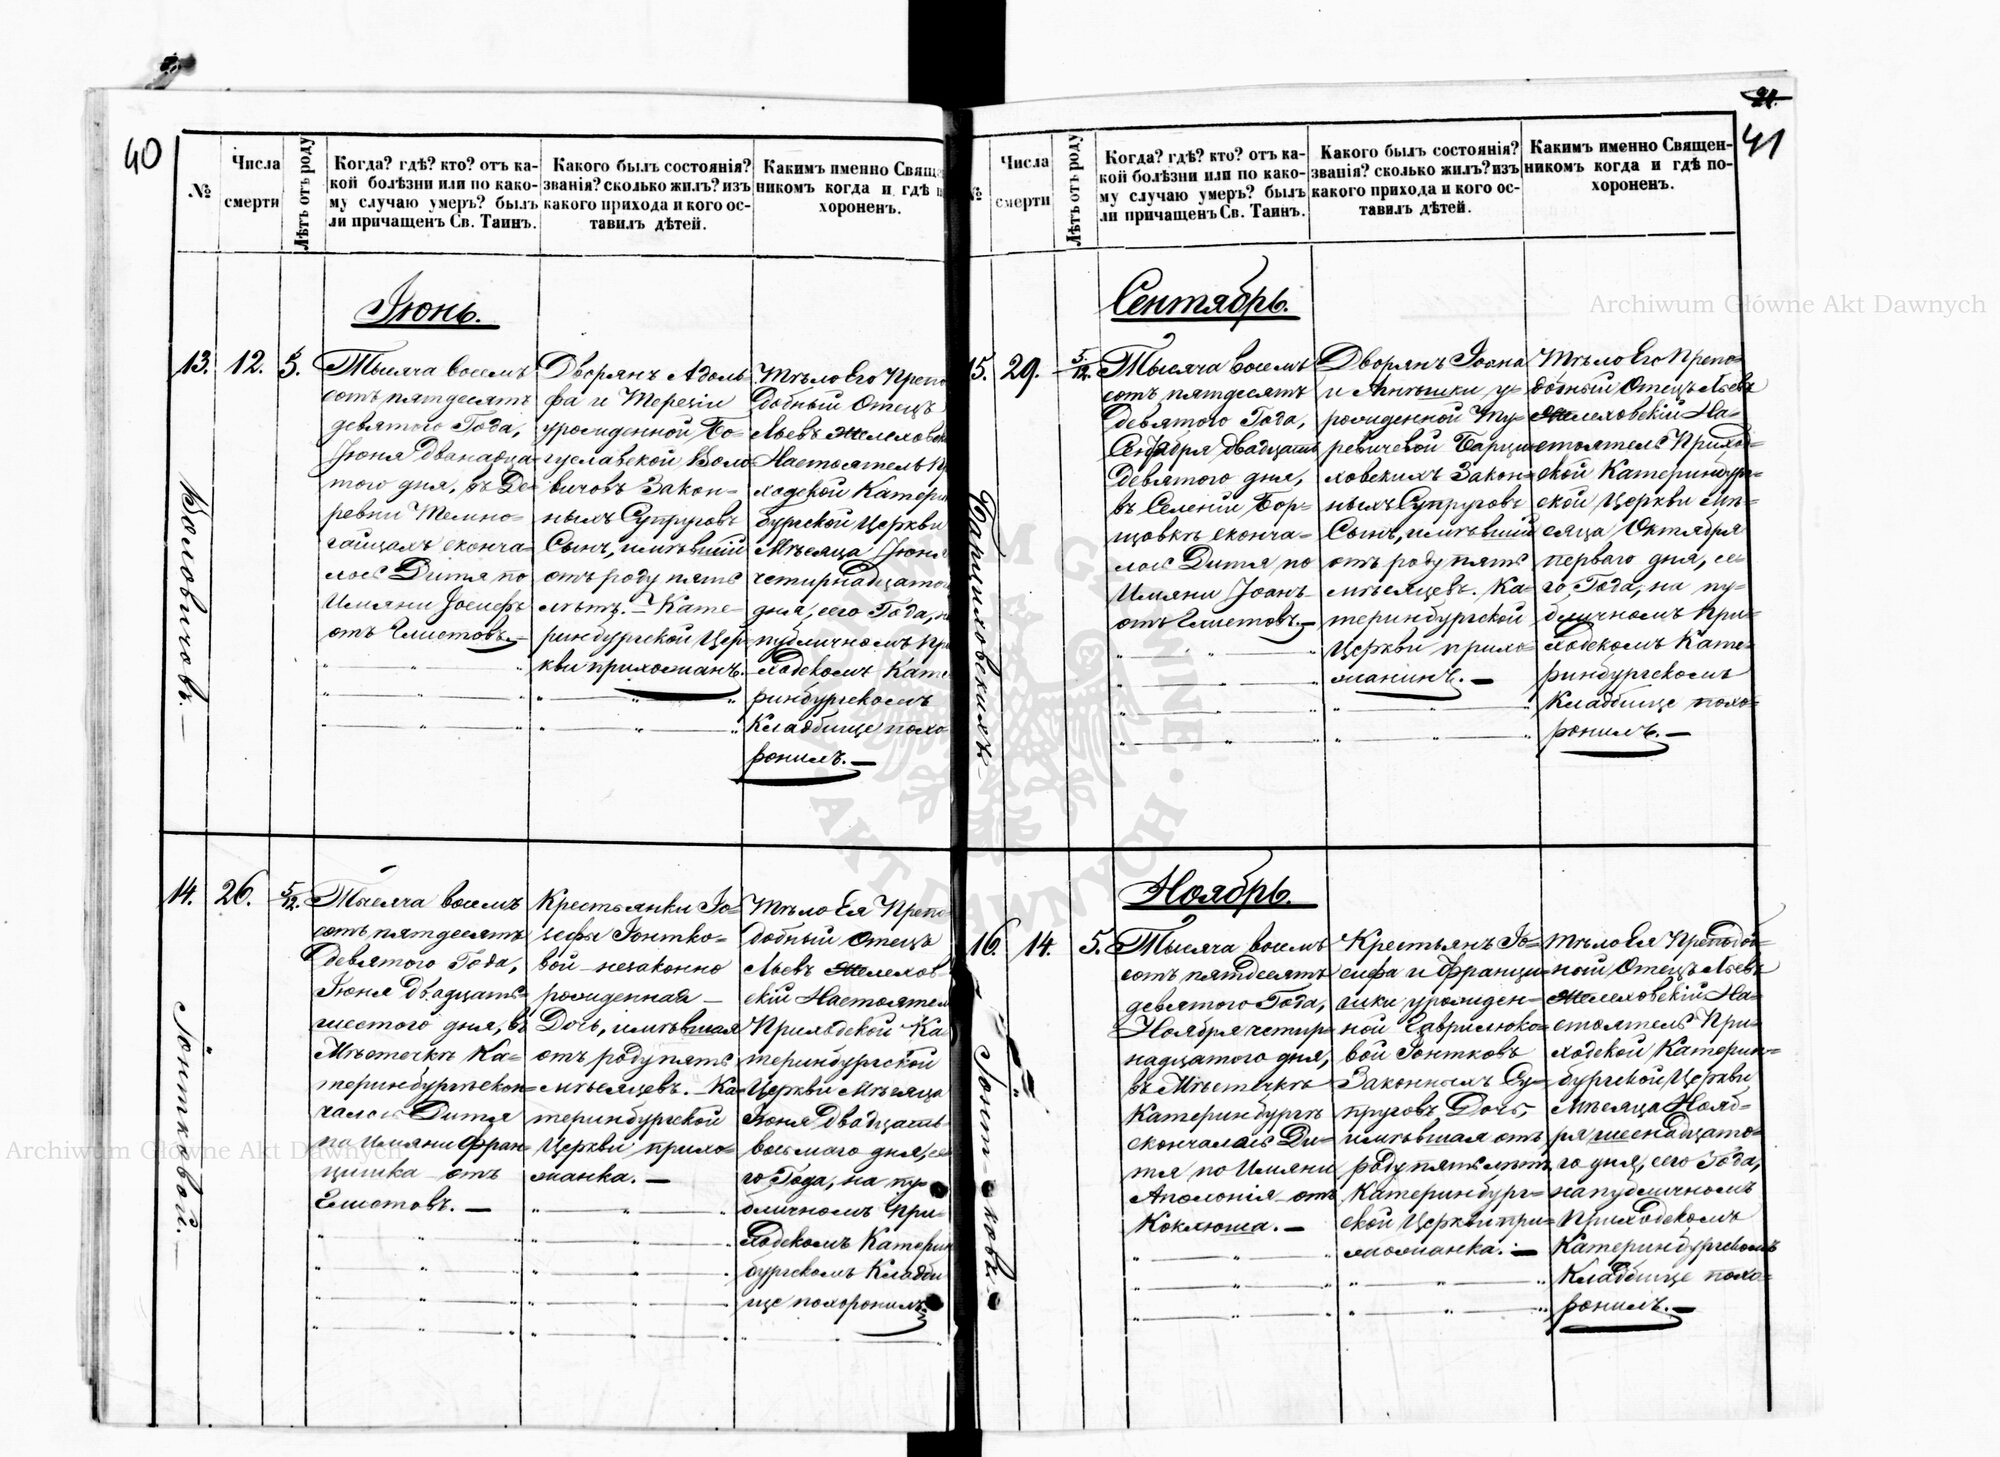 40
№
Числа
смерти
Лѣтъ отъ роду
Когда? гдѣ? кто? отъ ка-
кой болѣзни или по како-
му случаю умеръ? былъ
ли причащенъ Св. Таинъ.
Какого былъ состоянія?
званія? сколько жилъ? изъ
какого прихода и кого ос-
тавилъ дѣтей.
Какимъ именно Свящ
никомъ когда и гдѣ п
хороненъ.
Іюнь.
13.
12.
5.
Воловичовъ.—
Тысяча восемъ
сотъ пятдесятъ
девятого Года,
Іюня дванадца-
того дня, въ Де-
ревни Темно-
гайцахъ сконча-
лось Дитя по
Имяни Іосифъ
отъ Глистовъ.—
Дворянъ Адоль
фа и Терезіи
урожиденной Бо-
гуславской Воло
вичовъ Закон-
ныхъ Супруговъ
Сынъ, имѣвшій
отъ роду пять
лѣтъ.— Кате-
ринбургской Цер
кви прихожанъ.
Тѣло Его Препо
добный Отецъ
Льевъ Желеховск
Настоятель П
ходской Катери
бургской Церкви
Мѣсяца Іюня
четирнадцатого
дня, сего Года, н
публичномъ Пр
ходскомъ Кате
ринбургскомъ
Кладбище похо
ронилъ.—
14.
26.
5/12.
Іонтковой.—
Тысяча восемъ
сотъ пятдесятъ
девятого Года,
Іюня двадцать
шестого дня, въ
Мѣстечкѣ Ка-
теринбургѣ скон-
чалось Дитя
по Имяни Фран
цишка отъ
Глистовъ.—
Крестьянки Іо-
зефы Іонтко-
вой незаконно
рожиденная—
Дочь, имѣвшая
отъ роду пять
мѣсяцевъ.— Ка-
теринбургской
Церкви прихо-
жанка.—
Тѣло Ея Препо
добный Отецъ
Льевъ Желехов-
скій Настоятел
Приходской Ка-
теринбургской
Церкви Мѣсяца
Іюня двадцать
восьмаго дня, се
го Года, на пу-
бличномъ При-
ходскомъ Катерин
бургскомъ Кладби
ще похоронилъ
21.
41
№
Числа
смерти
Лѣтъ отъ роду
Когда? гдѣ? кто? отъ ка-
кой болѣзни или по како-
му случаю умеръ? былъ
ли причащенъ Св. Таинъ.
Какого былъ состоянія?
званія? сколько жилъ? изъ
какого прихода и кого ос-
тавилъ дѣтей.
Какимъ именно Священ-
никомъ когда и гдѣ по-
хороненъ.
Сентябрь.
15.
29.
5/12.
Барциховскихъ
Тысяча восемъ
сотъ пятдесятъ
девятого Года,
Сентября двадцать
девятого дня,
въ Селеніи Бор-
щовкѣ сконча-
лось Дитя по
Имяни Іоанъ
отъ Глистовъ.—
Дворянъ Іоана
и Аннѣшки у-
рожиденной Ту-
ревичевой Барци
ховскихъ Закон-
ныхъ Супруговъ
Сынъ, имѣвший
отъ роду пять
мѣсяцевъ. Ка-
теринбургской
Церкви прихо-
жанинъ.—
Тѣло Его Препо-
добный Отецъ Льевъ
Желеховскій На-
стоятель Прихо-
ской Катеринбург-
ской Церкви Мѣ-
сяца Октября
перваго дня, се-
го Года, на пу-
бличномъ При-
ходскомъ Кате-
ринбургскомъ
Кладбище похо-
ронилъ.—
Ноябрь.
16.
14.
5.
Іонт-ковъ.
Тысяча восемъ
сотъ пятдесятъ
девятого Года,
Ноября четир-
надцатого дня,
въ Мѣстечкѣ
Катеринбургѣ
скончалась Ди-
тя по Имяни
Аполонія отъ
Коклюша.—
Крестьянъ Іо-
сифа и Франци-
шки урожиден-
ной Гаврилюко-
вой Іонтковъ
Законныхъ Су-
пруговъ Дочь,
имѣвшая отъ
роду пять лѣтъ
Катеринбург-
ской Церкви при-
хожанка.—
Тѣло Ея Преподоб-
ный Отецъ Льевъ
Желеховскій На-
стоятель При-
ходской Катерин-
бургской Церкви
Мѣсяца Нояб-
ря шеснадцато-
го дня, сего Года,
на публичномъ
Приходскомъ
Катеринбургскомъ
Кладбище похо-
ронилъ.—
Archiwum Główne Akt Dawnych
Archiwum Główne Akt Dawnych